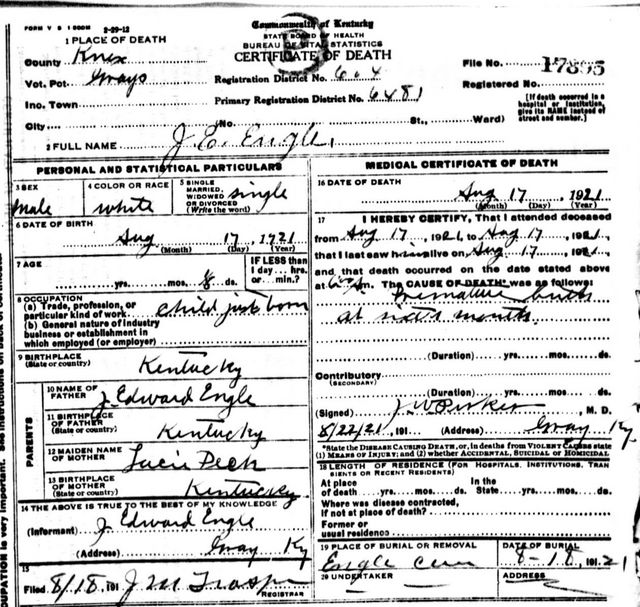 FORM V S 1 500M 2-29-12
Commonwealth of Kentucky
STATE BOARD OF HEALTH
BUREAU OF VITAL STATISTICS
CERTIFICATE OF DEATH
1 PLACE OF DEATH
County Knox
Vot. Pct. Grays
Ino. Town
City (No. St., Ward)
Registration District No. 604
Primary Registration District No. 6481
File No. 17895
Registered No.
[If death occurred in a hospital or institution, give its NAME instead of street and number.]
2 FULL NAME J. E. Engle,
PERSONAL AND STATISTICAL PARTICULARS
3 SEX male
4 COLOR OR RACE white
5 SINGLE MARRIED, WIDOWED OR DIVORCED (Write the word) single
6 DATE OF BIRTH
Aug 17, 1921
(Month) (Day) (Year)
7 AGE
yrs. mos. ds.
IF LESS than 1 day... hrs. or min.?
8 OCCUPATION
(a) Trade, profession, or particular kind of work child just born
(b) General nature of industry business or establishment in which employed (or employer)
9 BIRTHPLACE (State or country) Kentucky
PARENTS
10 NAME OF FATHER J Edward Engle
11 BIRTHPLACE OF FATHER (State or country) Kentucky
12 MAIDEN NAME OF MOTHER
13 BIRTHPLACE OF MOTHER (State or country) Kentucky
14 THE ABOVE IS TRUE TO THE BEST OF MY KNOWLEDGE
(Informant) J Edward Engle
(Address) Gray Ky
15
Filed 8/18 191 J M
REGISTRAR
MEDICAL CERTIFICATE OF DEATH
16 DATE OF DEATH
Aug 17, 1921
(Month) (Day) (Year)
17 I HEREBY CERTIFY, That I attended deceased
from Aug 17, 1921, to Aug 17, 1921
that I last saw him alive on Aug 17, 1921
and that death occurred on the date stated above
at m. The CAUSE OF DEATH* was as follows:
Premature birth
at months
(Duration) yrs. mos. ds.
Contributory
(SECONDARY)
(Duration) yrs. mos. ds.
(Signed) J W Parker, M. D.
8/22/21, 191 (Address) Gray Ky
*State the DISEASE CAUSING DEATH, or, in deaths from VIOLENT CAUSES state (1) MEANS OF INJURY; and (2) whether ACCIDENTAL, SUICIDAL or HOMICIDAL
18 LENGTH OF RESIDENCE (FOR HOSPITALS, INSTITUTIONS, TRANSIENTS OR RECENT RESIDENTS)
At place of death yrs. mos. ds. In the State yrs. mos. ds.
Where was disease contracted,
if not at place of death?
Former or
usual residence
19 PLACE OF BURIAL OR REMOVAL Engle Cem
DATE OF BURIAL 8-18, 1921
20 UNDERTAKER
ADDRESS